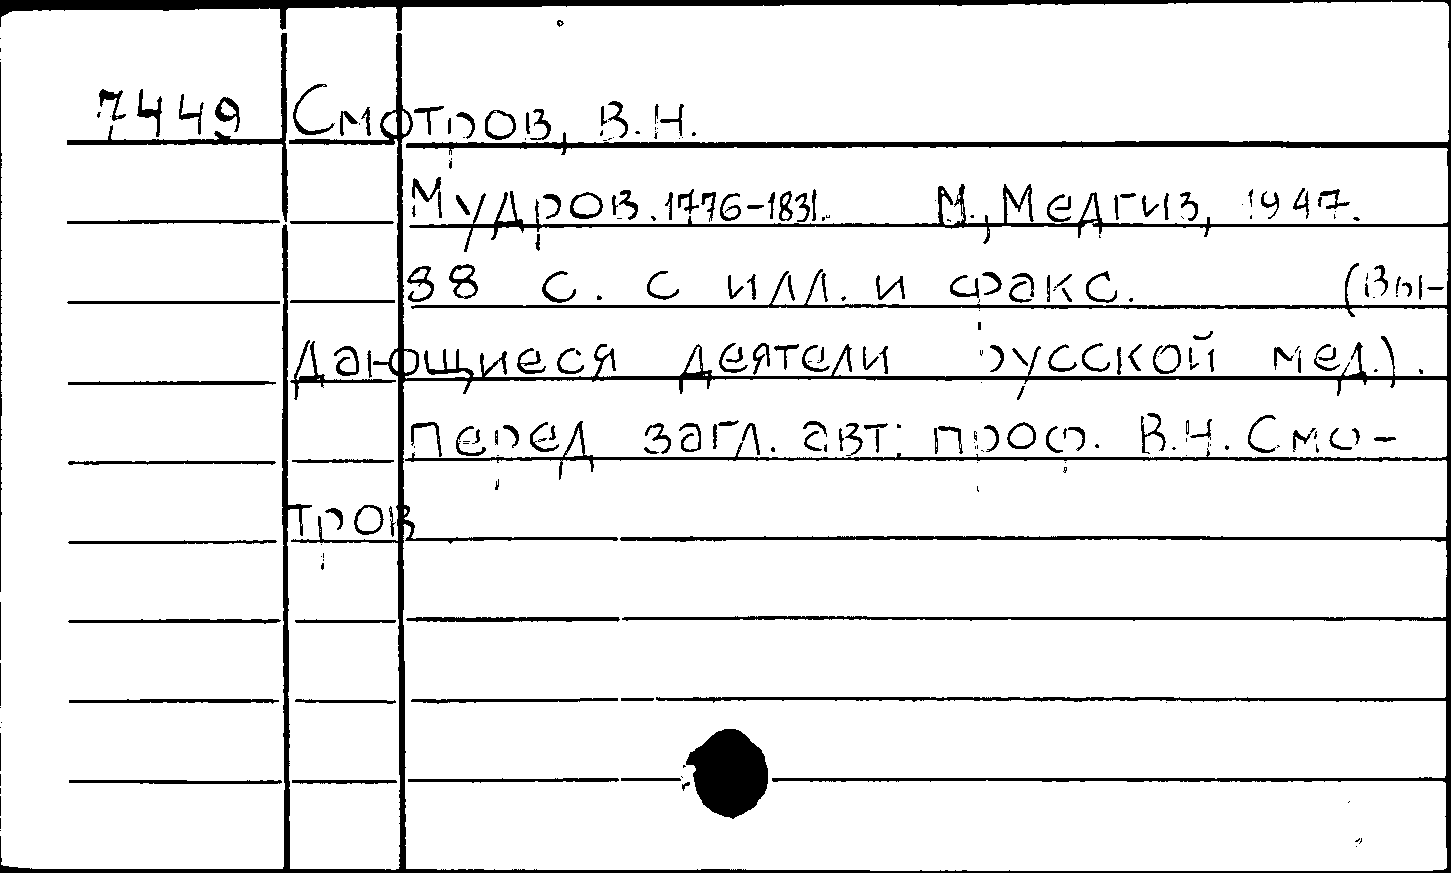 7449 Смотров, В.Н.
Мудров. 1776-1831. М., Медгиз, 1947.
88 с. с илл. и факс. (Вы-
дающиеся деятели русской мед.).
Перед загл. авт: проф. В.Н. Смо-
тров